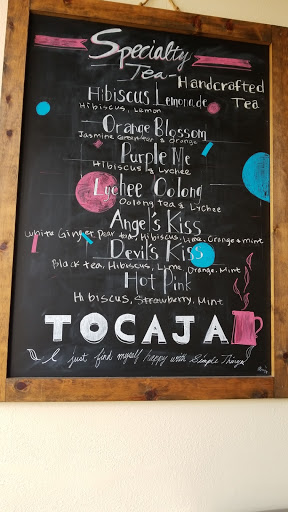 Specialty
Tea-
Handcrafted
Tea
Hibiscus Lemonade
Hibiscus, Lemon
Orange Blossom
Jasmine Greentea & Orange
Purple Me
Hibiscus & Lychee
Lychee Oolong
Oolong Tea & Lychee
Angel's Kiss
White Ginger Pear tea, Hibiscus, Lime, Orange & mint
Devil's Kiss
Black tea, Hibiscus, Lime, Orange, Mint
Hot Pink
Hibiscus, Strawberry, Mint
TOCAJA
I just find myself happy with Simple Things